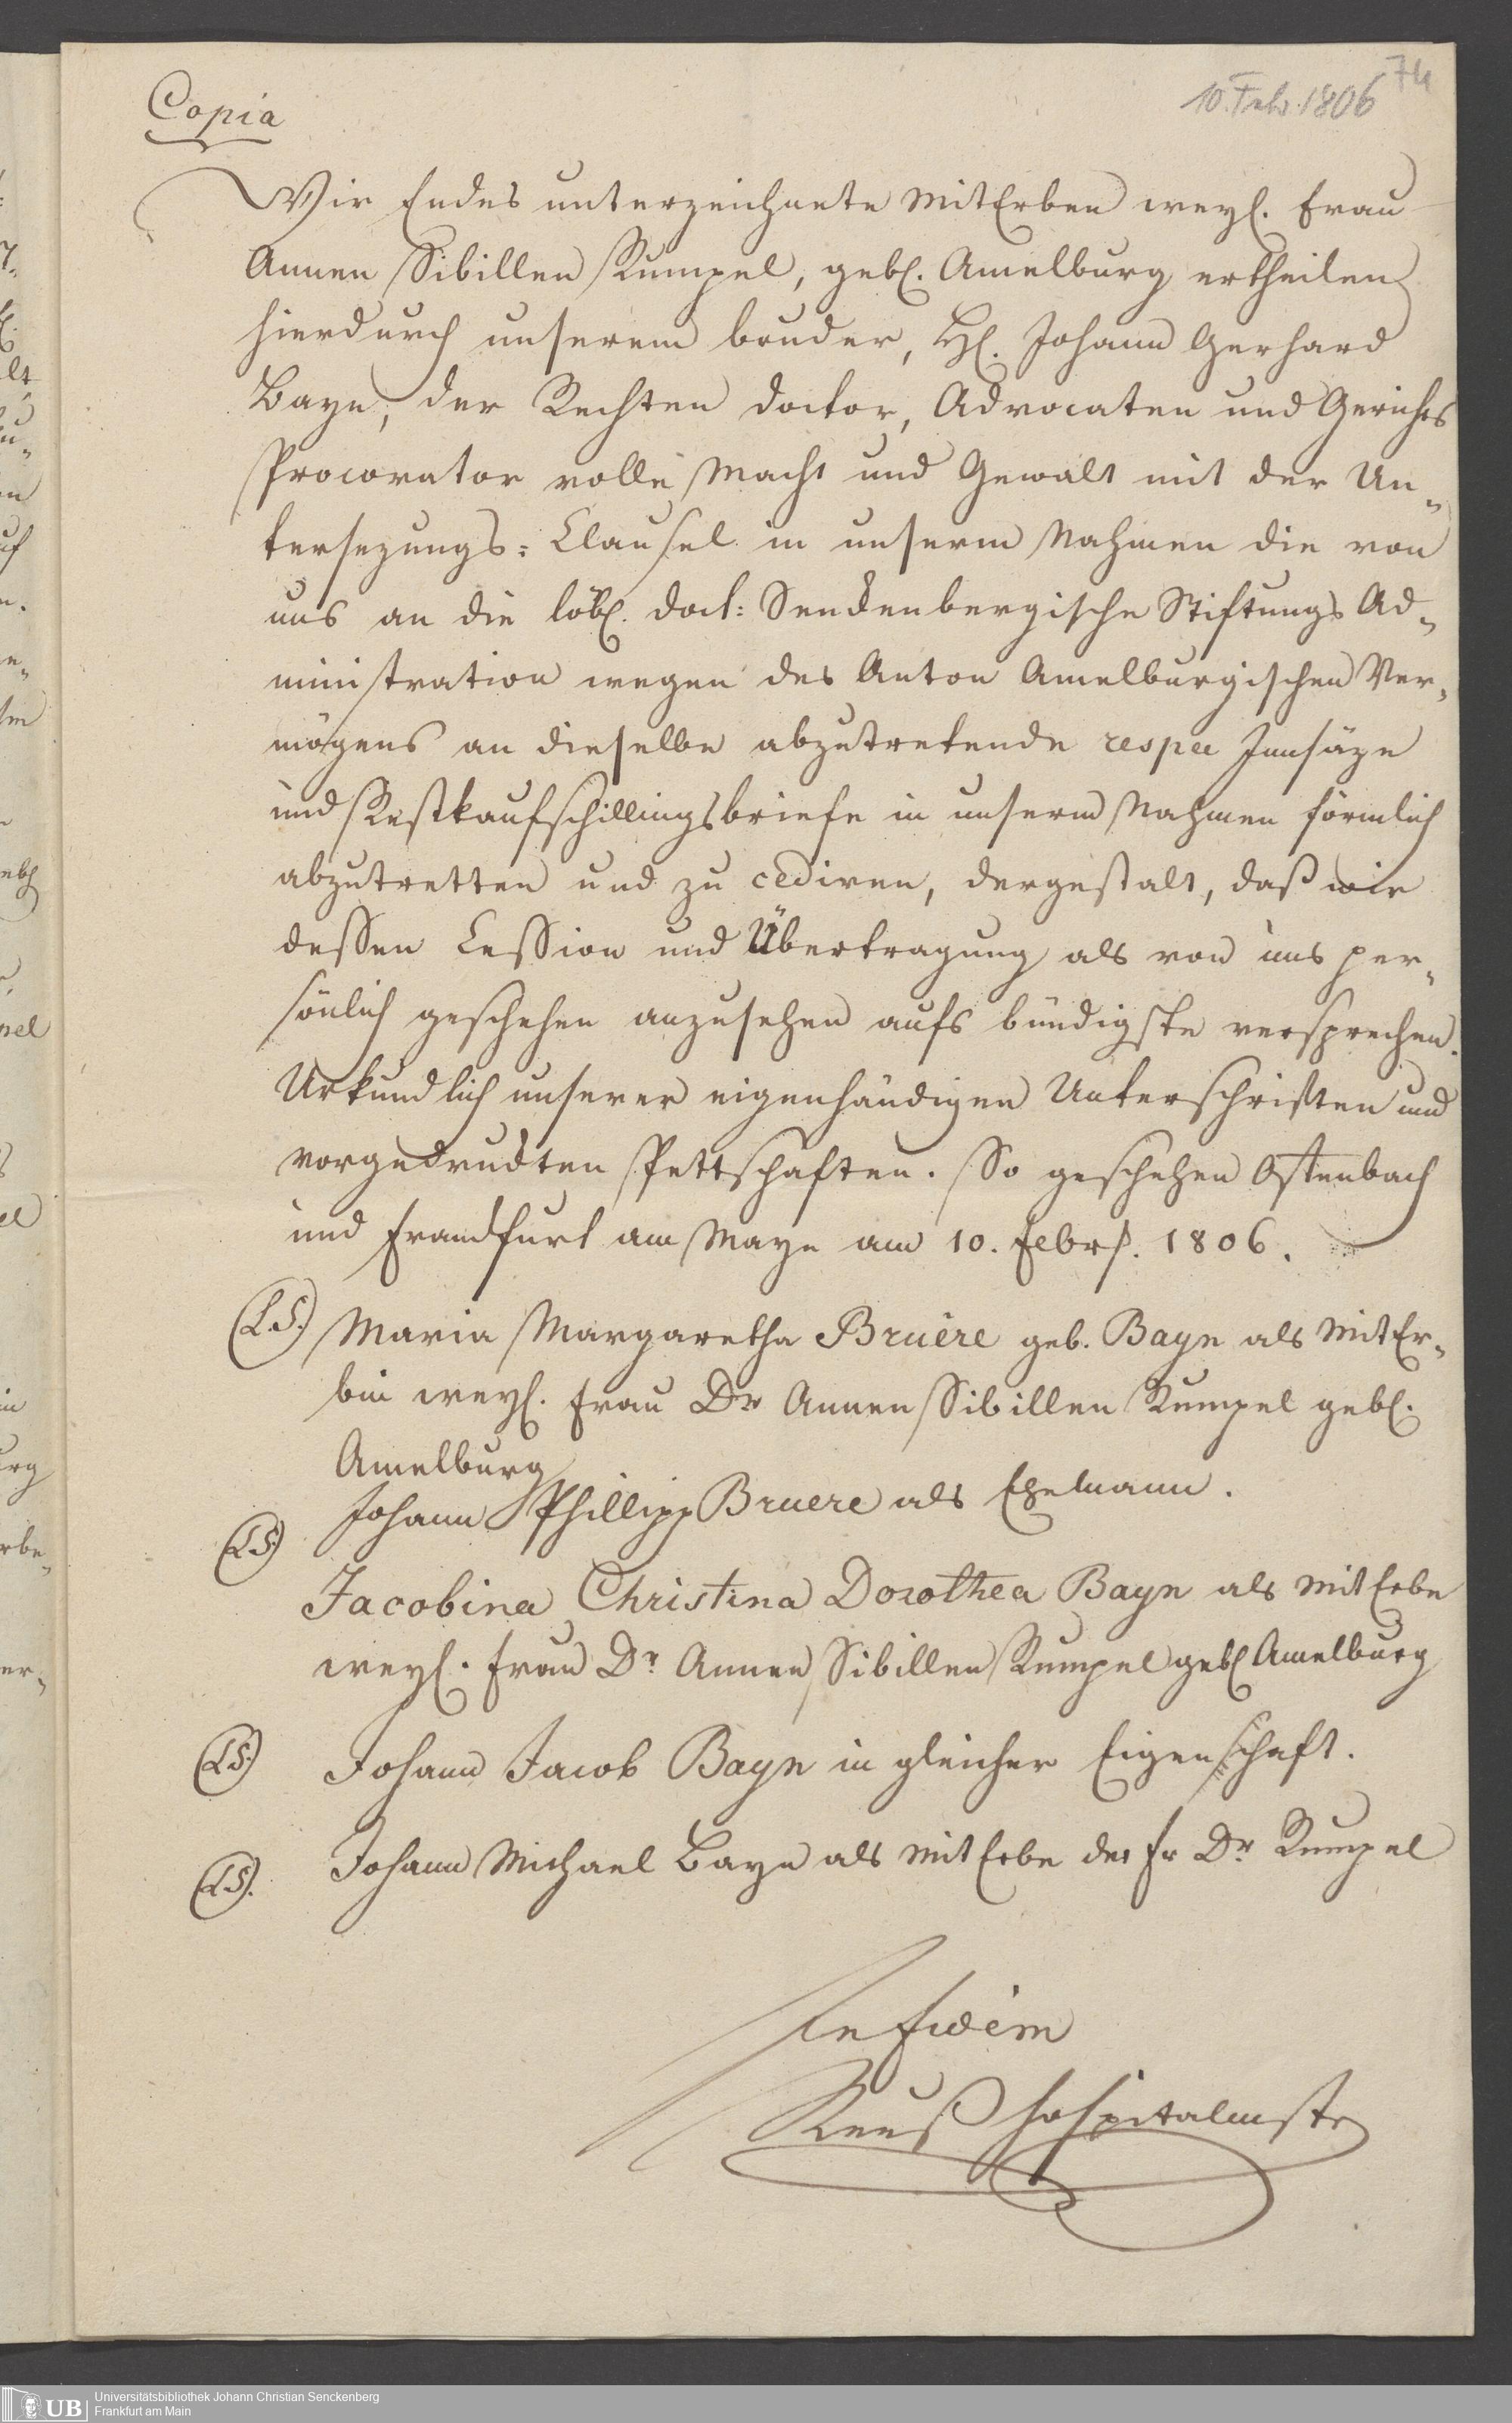 Copia
10. Febr. 1806
74
Wir Endes unterzeichnete MitErben weyl. Frau
Annen Sibillen Rumpel, gebl. Amelburg ertheilen
hierdurch unserem bruder, Hl. Johann Gerhard
Bayn, der Rechten doctor, Advocaten und Gerichts
Procorator volle Macht und Gewalt mit der Un-
tersezungs-Clausel in unserm Nahmen die von
uns an die löbl. doct: Senckenbergische Stiftungs Ad-
ministration wegen des Anton Amelburgischen Ver-
mögens an dieselbe abzutretende respee Innsäze
und Restkaufschillingsbriefe in unserm Nahmen förmlich
abzutretten und zu cediren, dergestalt, daß wir
dessen Cession und Übertragung als von uns per-
sönlich geschehen anzusehen aufs bündigste versprechen.
Urkundlich unserer eigenhändigen Unterschriften und
vorgedruckten Pettschaften. So geschehen Offenbach
und Franckfurt am Mayn am 10. Febr. 1806.
(L.S.) Maria Margaretha Bruère geb. Bayn als MitEr-
bin weyl. Frau Dr Annen Sibillen Rumpel gebl.
Amelburg
(LS) Johann Phillipp Bruere als Ehemann.
Jacobina Christina Dorothea Bayn als MitErbe
weyl. Frau Dr. Annen Sibillen Rumpel gebl Amelburg
(LS.) Johann Jacob Bayn in gleicher Eigenschaft.
(LS). Johann Michael Bayn als MitErbe der Fr Dr Rumpel
In fidem
Reuß Hospitalmstr
UB
Universitätsbibliothek Johann Christian Senckenberg
Frankfurt am Main